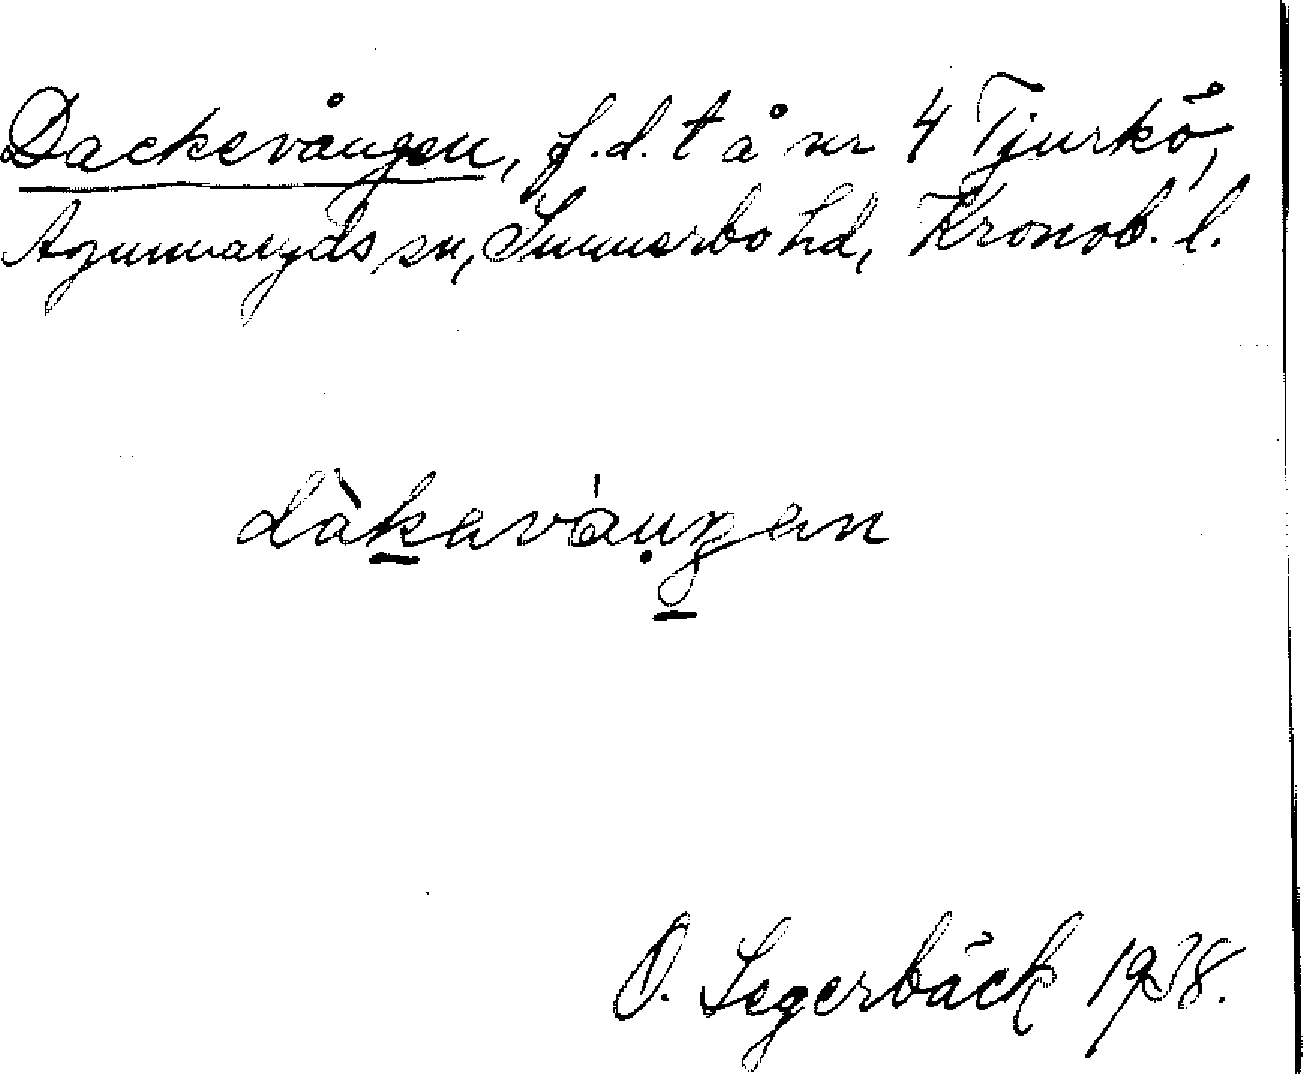 Dackevången, f.d. t å nr 4 Tjurkö,
Agunnaryds sn, Sunnerbo hd, Kronob. l.
dàkavángan
O. Segerbäck 1938.